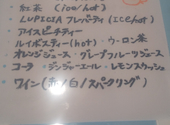 紅茶 (ice/hot)
LUPICIA フレーバティ (ICE/hot)
・アイスピーチティー
ルイボスティー(hot)・ウーロン茶
・オレンジジュース・グレープフルーツジュース
・コーラ・ジンジャーエール・レモンスカッシュ
ワイン(赤/白/スパークリング)